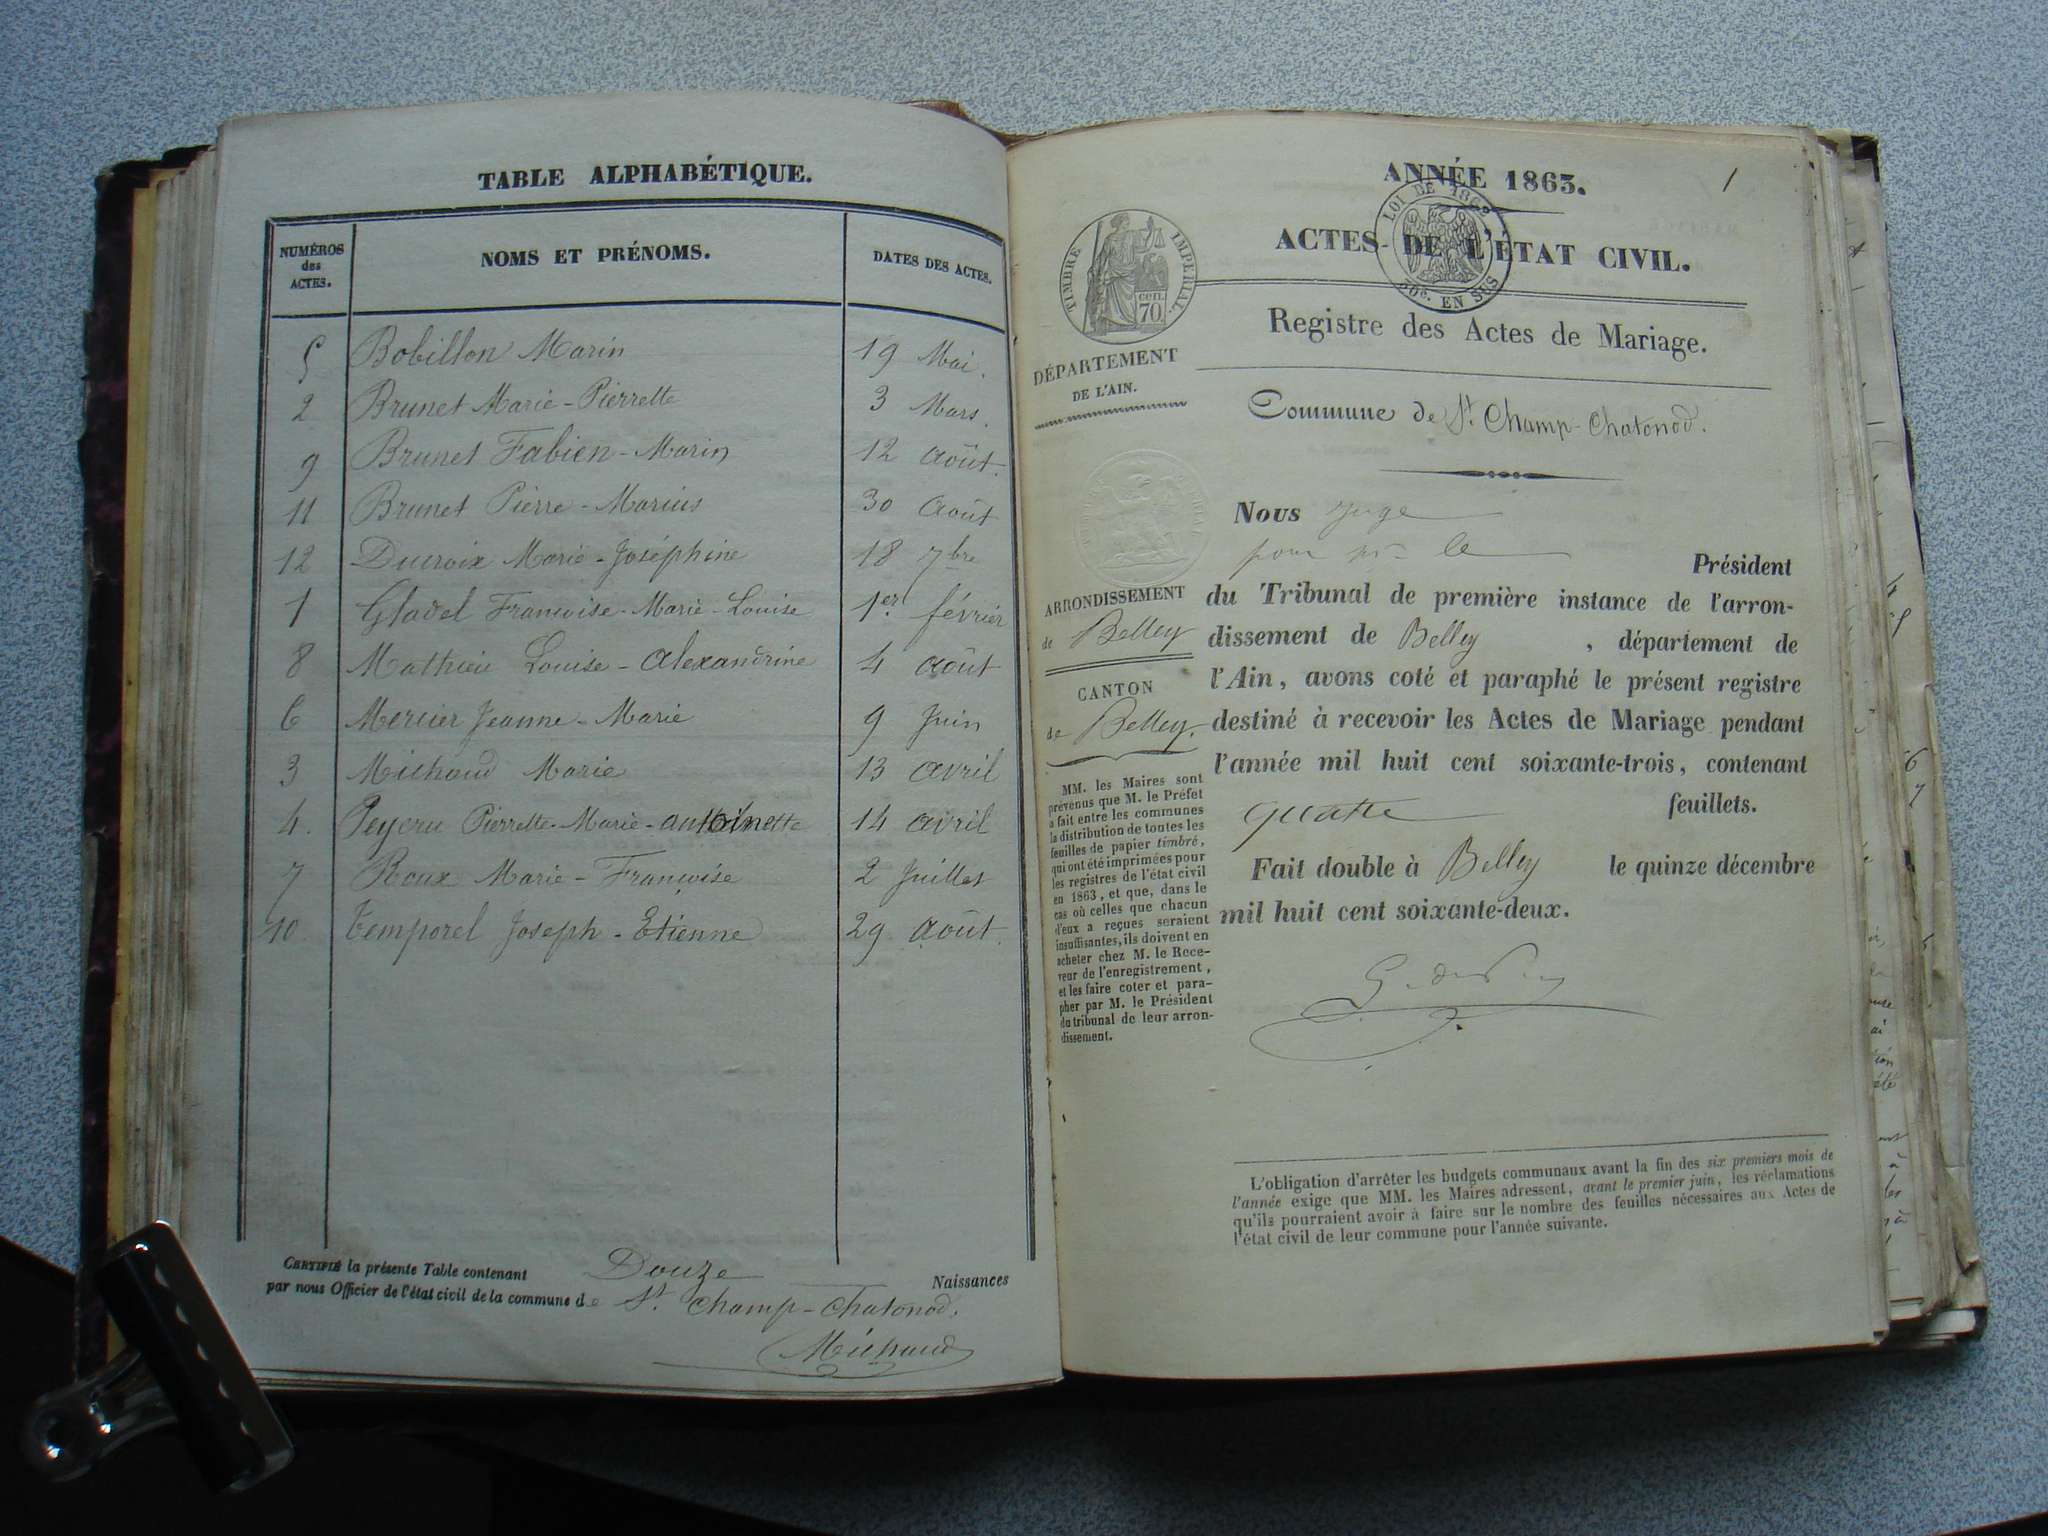 TABLE ALPHABÉTIQUE.
NUMÉROS des ACTES. NOMS ET PRÉNOMS. DATES DES ACTES.
5 Bobillon Marin 19 Mai.
2 Brunet Marie-Pierrette 3 Mars.
9 Brunet Fabien-Marin 12 août.
11 Brunet Pierre-Marius 30 août
12 Ducroix Marie-Joséphine 18 7bre
1 Gladel Françoise-Marie-Louise 1er février
8 Mathieu Louise-Alexandrine 4 août
6 Mercier Jeanne-Marie 9 Juin
3 Michaud Marie 13 avril
4. Peycru Pierrette-Marie-antoinette 14 avril
7 Roux Marie-Françoise 2 Juillet
10. Temporel Joseph-Etienne 29 août.
CERTIFIÉ la présente Table contenant Douze Naissances
par nous Officier de l'état civil de la commune de St. Champ-Chatonod.
Michaud
1
ANNÉE 1863.
LOI DE 1862
20c. EN SUS
TIMBRE IMPERIAL.
70 cen.
ACTES DE L'ÉTAT CIVIL.
Registre des Actes de Mariage.
DÉPARTEMENT
DE L'AIN.
Commune de St. Champ-Chatonod.
ARRONDISSEMENT
de Belley
CANTON
de Belley.
MM. les Maires sont
prévenus que M. le Préfet
a fait entre les communes
la distribution de toutes les
feuilles de papier timbré,
qui ont été imprimées pour
les registres de l'état civil
en 1863, et que, dans le
cas où celles que chacun
d'eux a reçues seraient
insuffisantes, ils doivent en
acheter chez M. le Rece-
veur de l'enregistrement,
et les faire coter et para-
pher par M. le Président
du tribunal de leur arron-
dissement.
Nous Juge
pour le Président
du Tribunal de première instance de l'arron-
dissement de Belley, département de
l'Ain, avons coté et paraphé le présent registre
destiné à recevoir les Actes de Mariage pendant
l'année mil huit cent soixante-trois, contenant
quatre feuillets.
Fait double à Belley le quinze décembre
mil huit cent soixante-deux.
L'obligation d'arrêter les budgets communaux avant la fin des six premiers mois de
l'année exige que MM. les Maires adressent, avant le premier juin, les réclamations
qu'ils pourraient avoir à faire sur le nombre des feuilles nécessaires aux Actes de
l'état civil de leur commune pour l'année suivante.